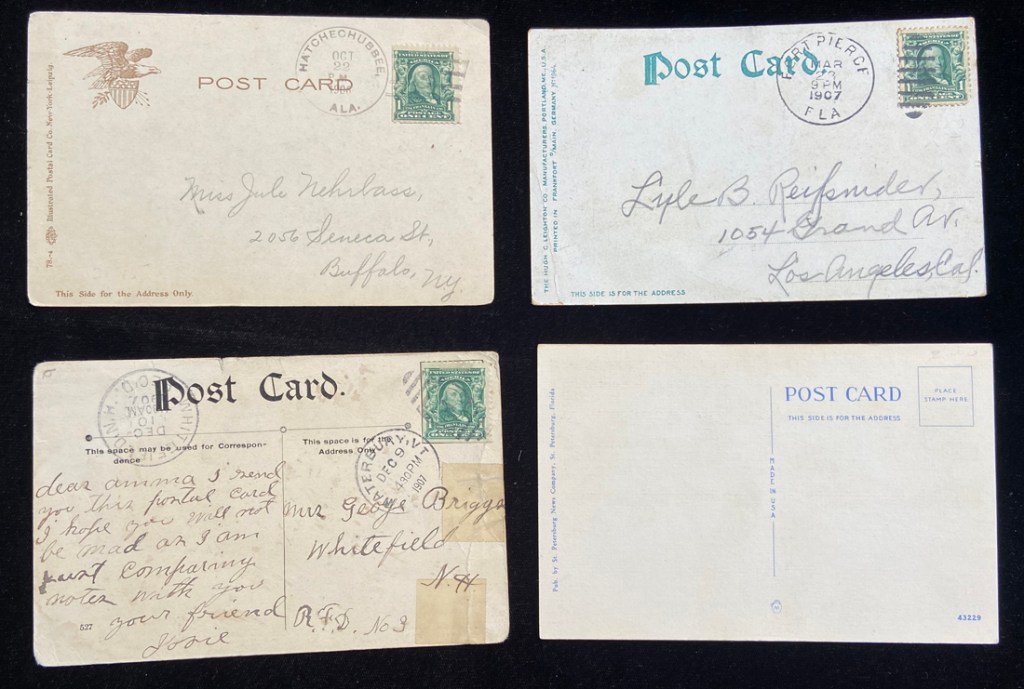 HATCHECHUBBEE,
OCT
22
ALA.
POST CARD
1
ONE CENT
Miss Jule Nehrbass,
2056 Seneca St,
Buffalo, Ny.
Illustrated Postal Card Co. New York-Leipzig.
This Side for the Address Only
Post Card.
FORT PIERCE
MAR
23
9 PM
1907
FLA
Lyle B. Reifsnider,
1054 Grand Av.
Los Angeles, Cal.
THE HUGH C. LEIGHTON CO., MANUFACTURERS, PORTLAND, ME., U.S.A.
PRINTED IN FRANKFORT O/MAIN, GERMANY
THIS SIDE IS FOR THE ADDRESS
Post Card.
WHITEFIELD, N.H.
DEC
10
AM
REC'D.
WATERBURY, VT
DEC 9
430PM
1907
1
ONE CENT
This space may be used for Correspon-
dence
This space is for the
Address Only
dear amma I send
you this postal card
I hope you will not
be mad as I am
comparing
notes with you
your friend
Mrs George Briggs
Whitefield
N.H.
R.F.D. No 3
527
POST CARD
THIS SIDE IS FOR THE ADDRESS
PLACE
STAMP HERE
MADE IN USA
Pub. by St. Petersburg News Company, St. Petersburg, Florida
43229